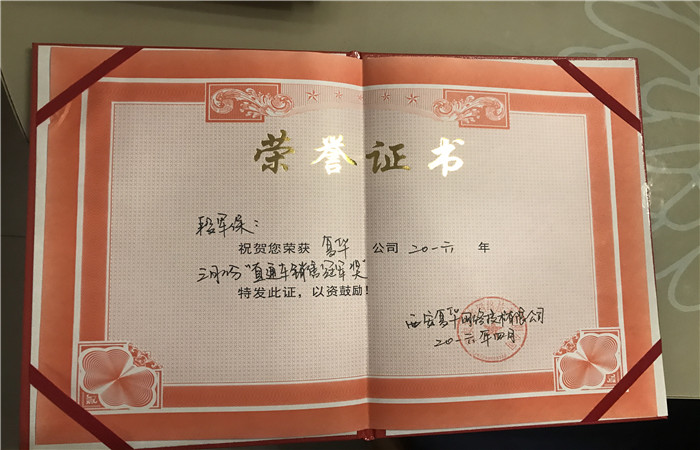 荣誉证书
段军保：
祝贺您荣获 复华 公司 二〇一六 年
三月份“直通车销售冠军奖”
特发此证，以资鼓励！
西安复华网络技术有限公司
二〇一六年四月